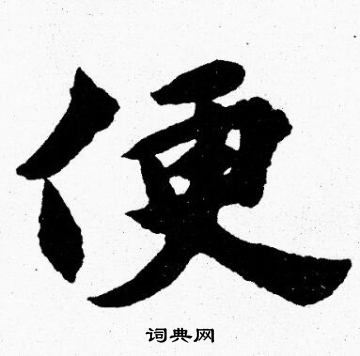 便
词典网